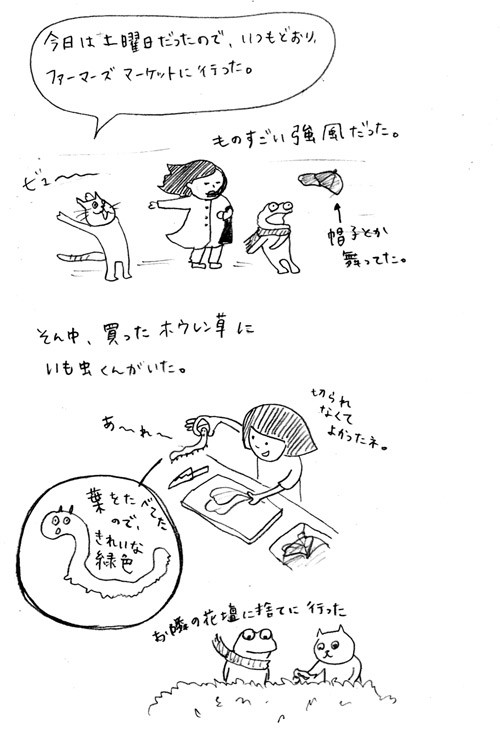 今日は土曜日だったので、いつもどおり、
ファーマーズ マーケットに行った。
ものすごい強風だった。
ビュ〜〜
帽子とか
舞ってた。
そん中、買ったホウレン草に
いも虫くんがいた。
切られ
なくて
よかったネ。
あ〜れ〜
葉をたべてた
ので、
きれいな
緑色
お隣の花壇に捨てに行った